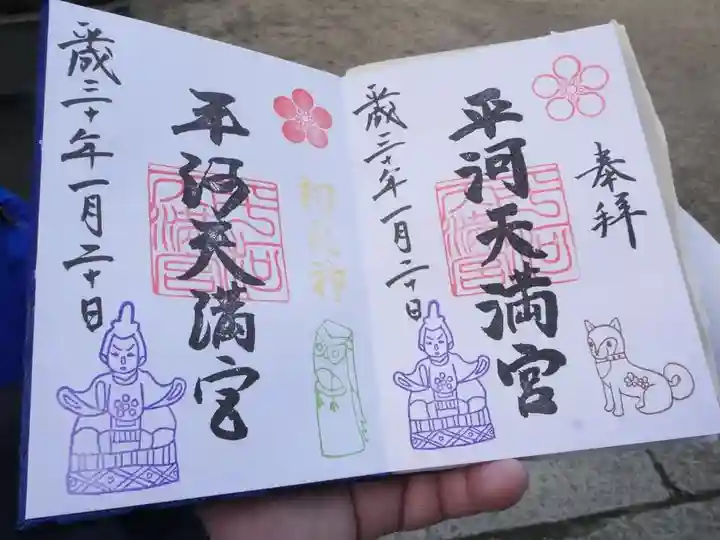 奉拝
平河天満宮
歳三十年一月二十日
初天神
平河天満宮
歳三十年一月二十日